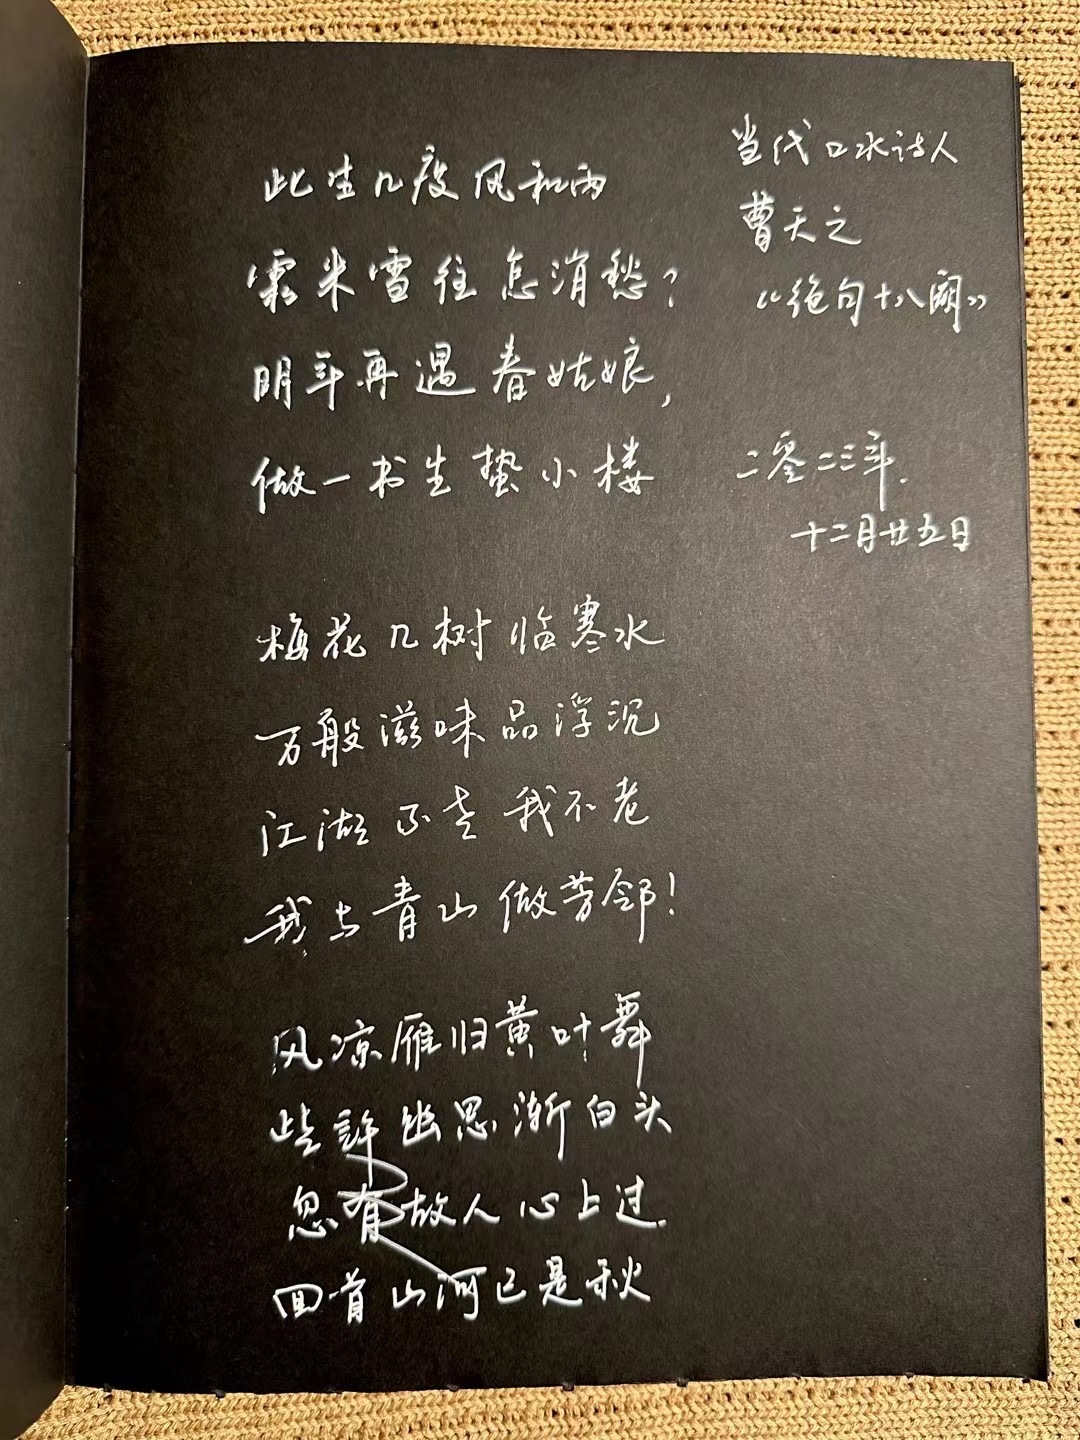 此生几度风和雨
霜来雪往怎消愁?
明年再遇春姑娘,
做一书生蛰小楼
梅花几树临寒水
万般滋味品浮沉
江湖不老我不老
我与青山做芳邻!
风凉雁归黄叶舞
些許幽思渐白头
忽有故人心上过.
回首山河已是秋
当代口水诗人
曹天之
《绝句十八阕》
二零二三年.
十二月廿五日